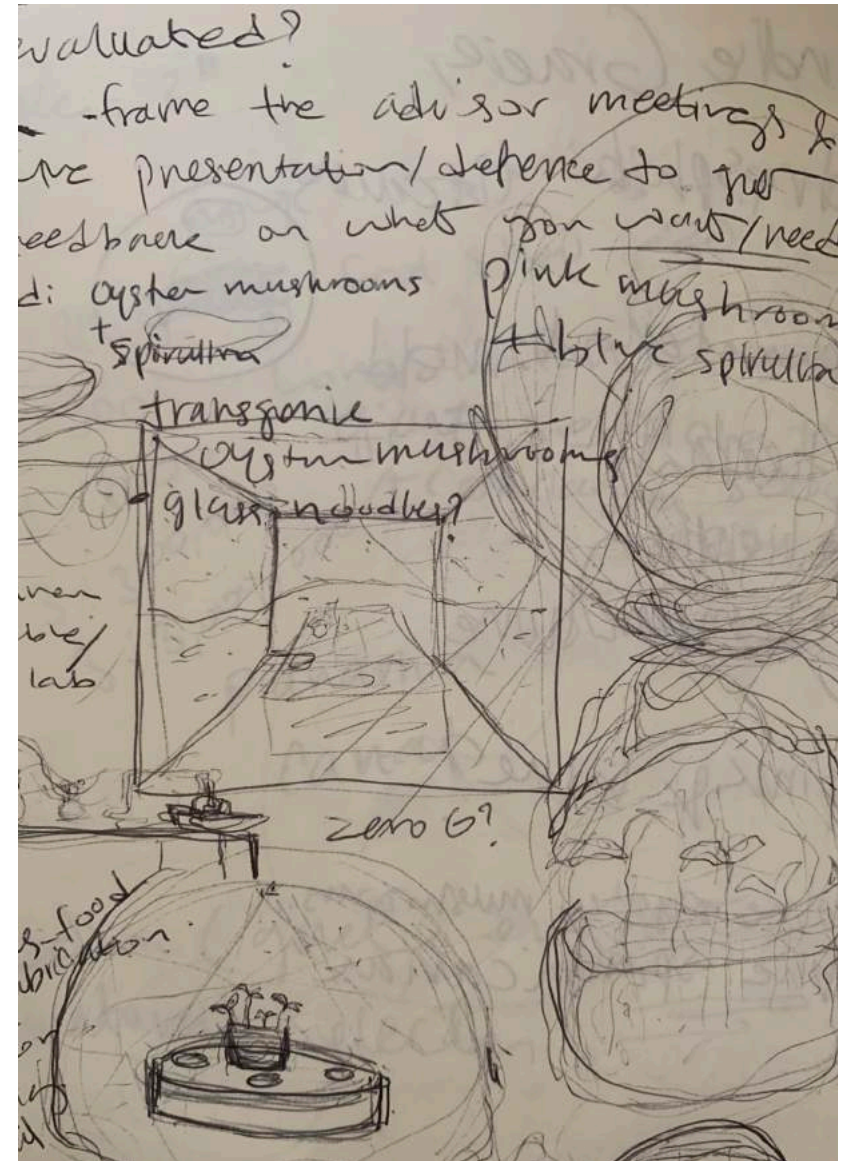 evaluated?
-frame the advisor meetings &
presentation/defence to get
feedback on what you want/need
d: oyster mushrooms
pink mushroom
+ spirulina
+ blue spirulina
transgenic
oyster mushrooms
glass noodles?
lab
zero G?
food